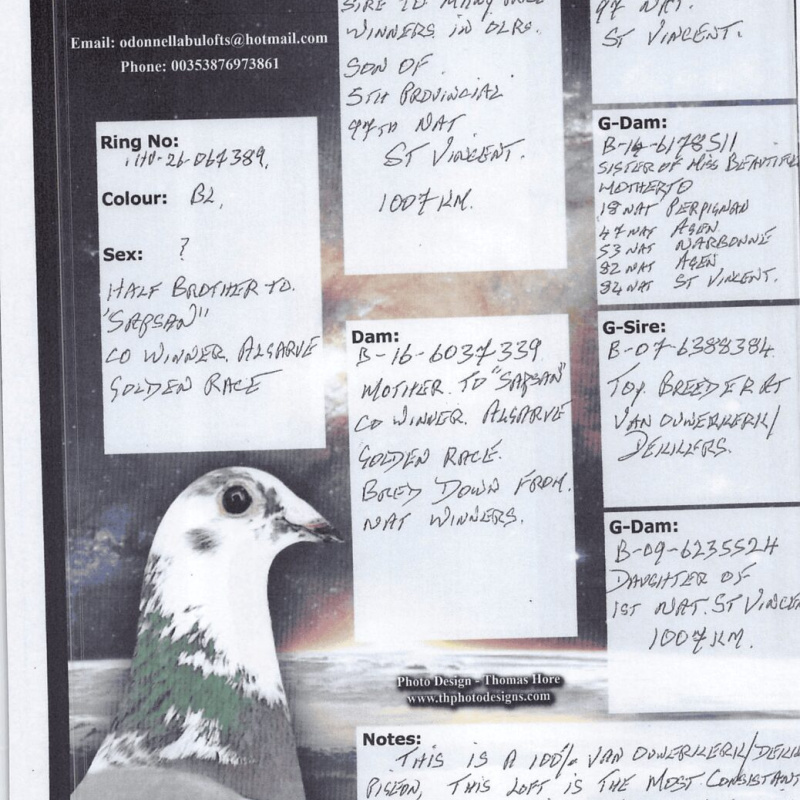 SIRE TO MANY
WINNERS IN OLRS.
SON OF
5TH PROVINCIAL
97TH NAT
ST VINCENT.
1007 KM.
97 NAT.
ST VINCENT.
Email: odonnellabulofts@hotmail.com
Phone: 00353876973861
Ring No:
067389,
Colour: BL,
Sex: ?
HALF BROTHER TO.
"SAPSAN"
CO WINNER. ALGARVE
GOLDEN RACE
Dam:
B-16-6037339
MOTHER. TO "SAPSAN"
CO WINNER. ALGARVE
GOLDEN RACE.
BRED DOWN FROM.
NAT WINNERS.
G-Dam:
B-14-6178511
SISTER OF MISS BEAUTIFUL
MOTHER TO
18 NAT PERPIGNAN
47 NAT AGEN
53 NAT NARBONNE
82 NAT AGEN
84 NAT ST VINCENT.
G-Sire:
B-07-6388384
TOP. BREEDER AT
VAN OUWERKERK/
DEKKERS.
G-Dam:
B-09-6235524
DAUGHTER OF
1ST NAT. ST VINCEN
1007 KM.
Photo Design - Thomas Hore
www.thphotodesigns.com
Notes:
THIS IS A 100% VAN OUWERKERK/DEKK
PIGEON, THIS LOFT IS THE MOST CONSISTANT